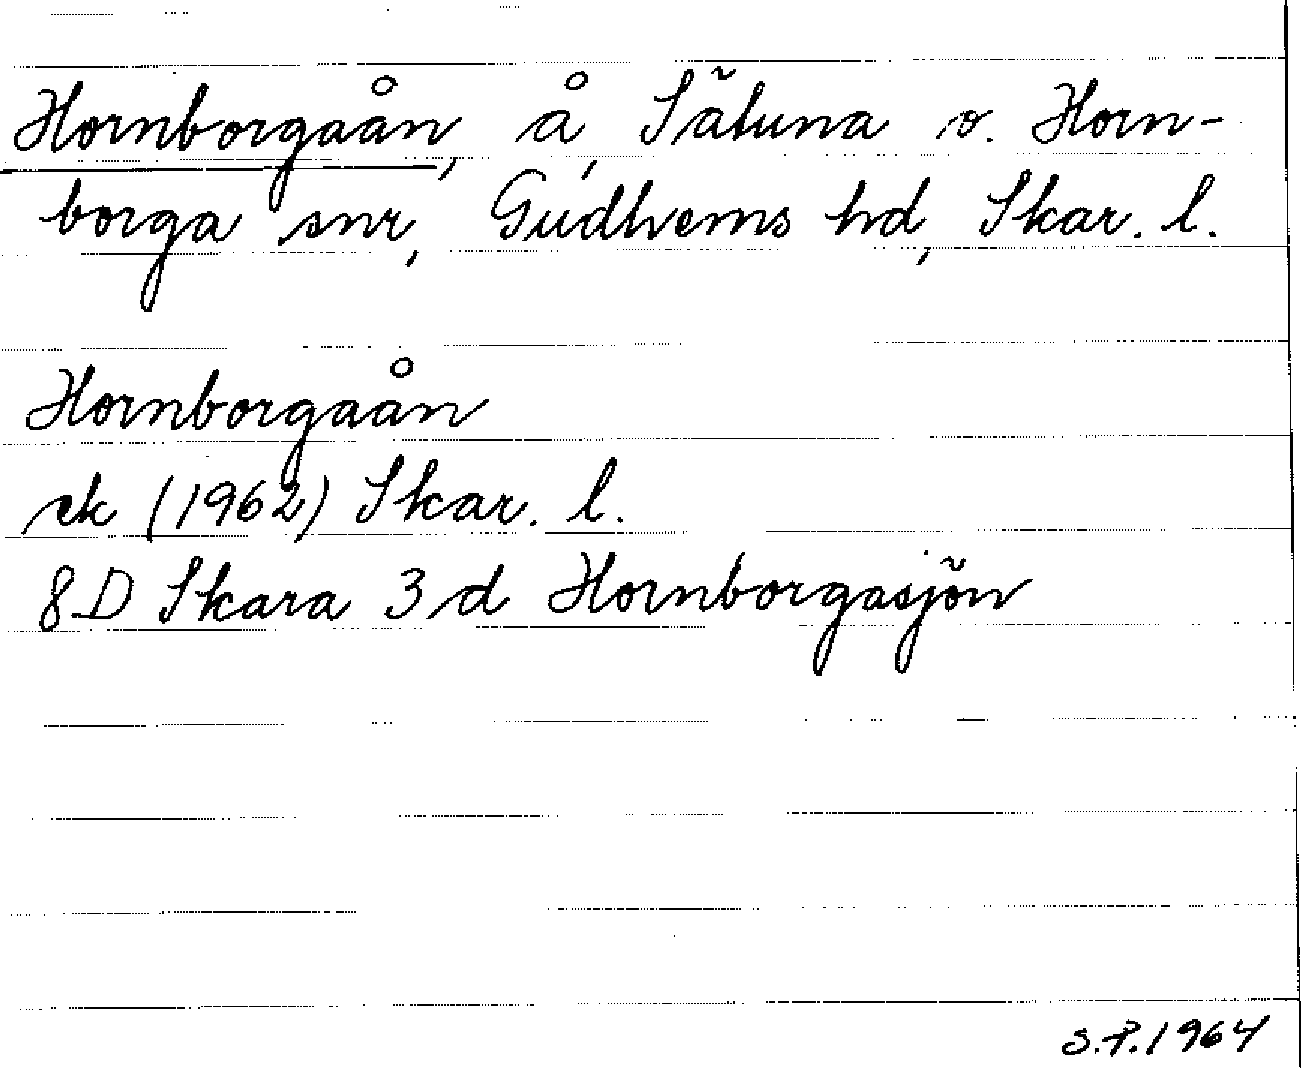 Hornborgaån, å, Sätuna o. Horn-
borga snr, Gudhems hd, Skar. l.
Hornborgaån
ek (1962) Skar. l.
8D Skara 3d Hornborgasjön
S.P. 1964